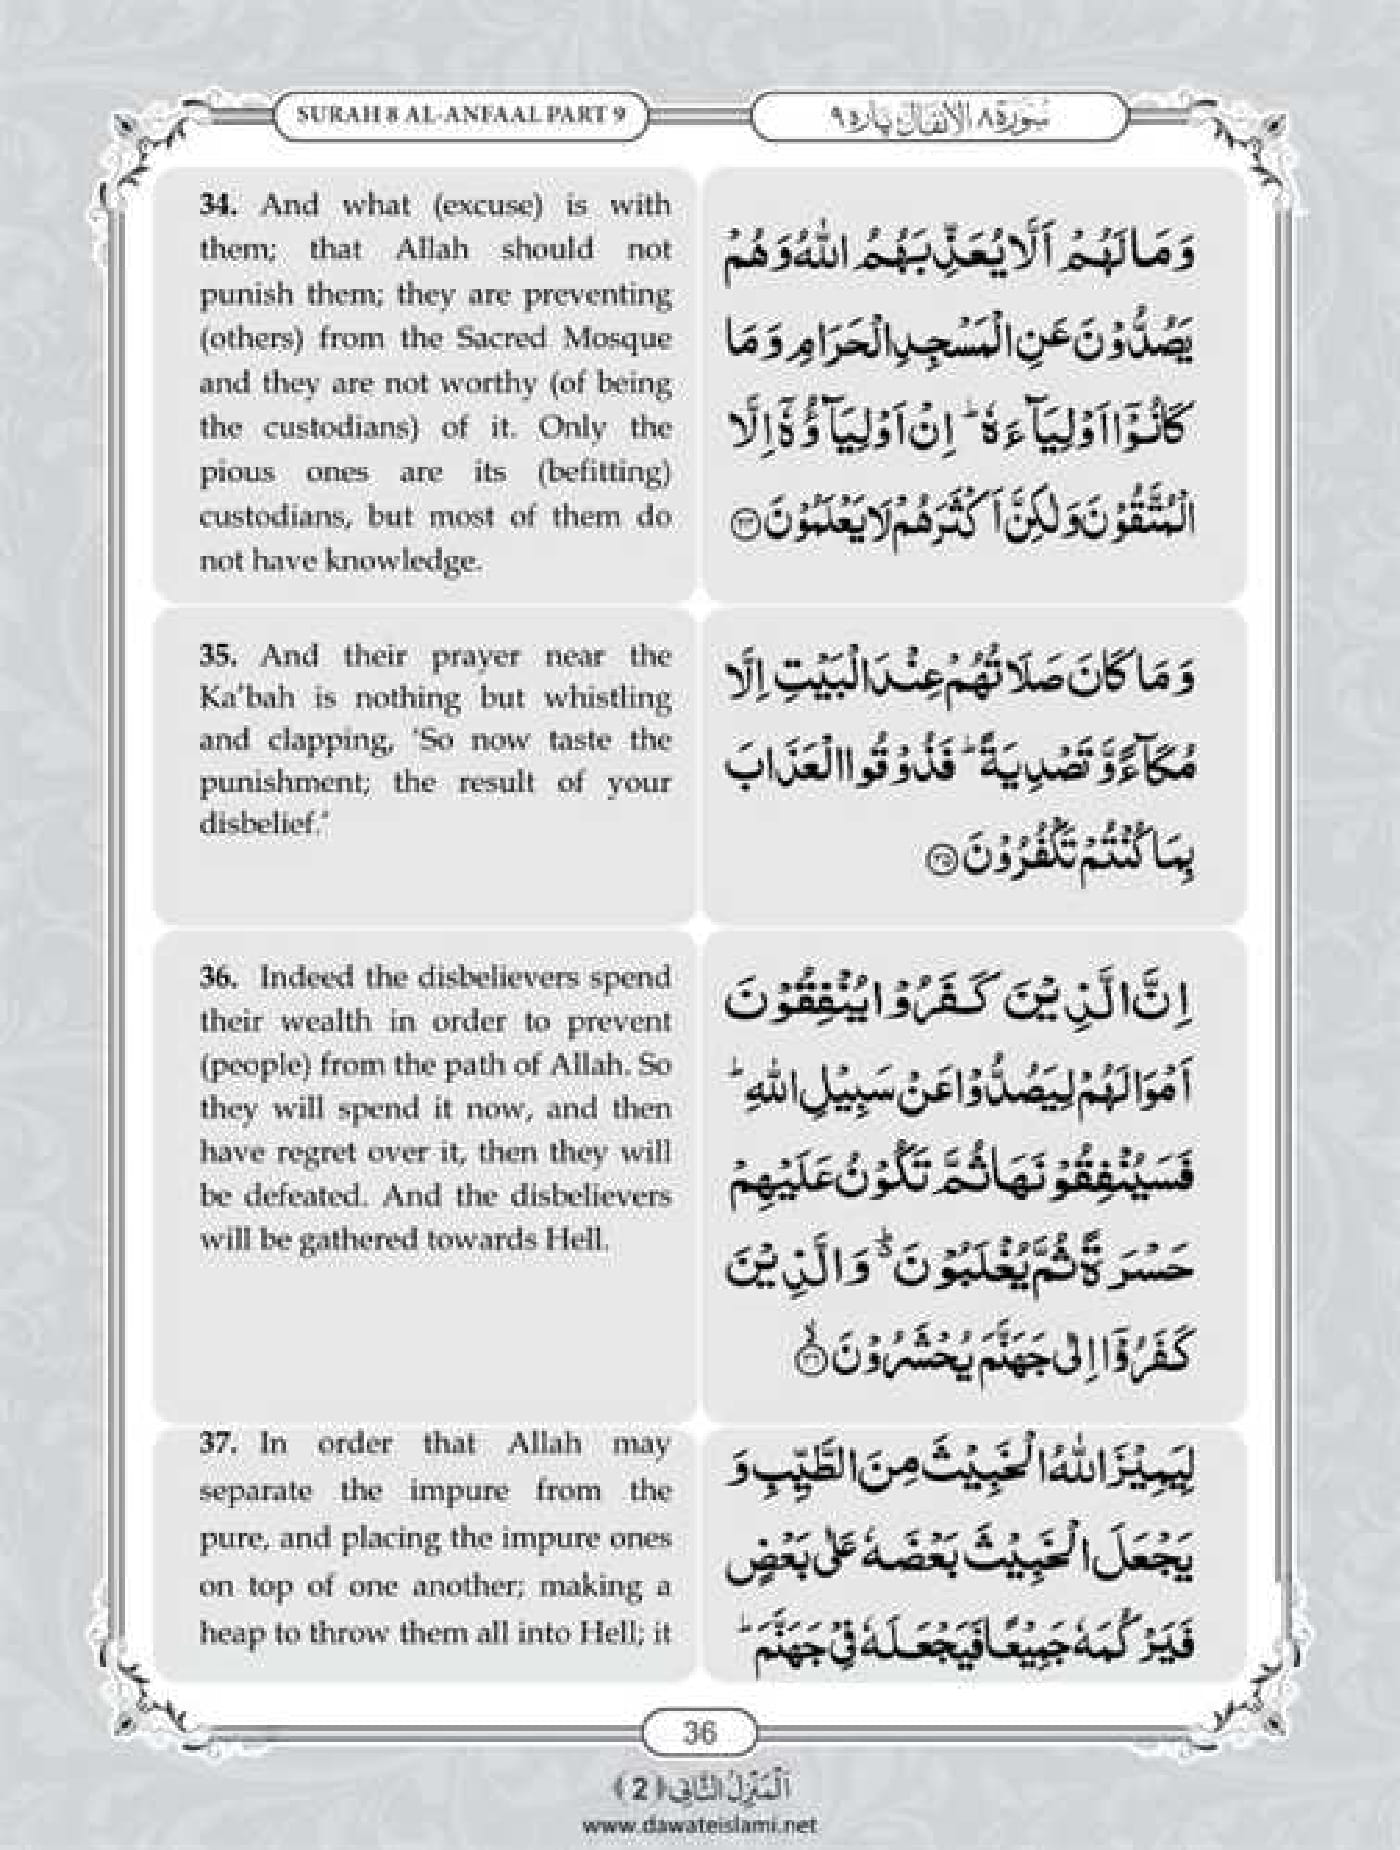 SURAH 8 AL-ANFAAL PART 9
سُورَةُ ٨ الْاَنْفَال پارہ ٩
34. And what (excuse) is with
them; that Allah should not
punish them; they are preventing
(others) from the Sacred Mosque
and they are not worthy (of being
the custodians) of it. Only the
pious ones are its (befitting)
custodians, but most of them do
not have knowledge.
وَمَا لَهُمْ اَلَّا يُعَذِّبَهُمُ اللّٰهُ وَهُمْ
يَصُدُّوْنَ عَنِ الْمَسْجِدِ الْحَرَامِ وَمَا
كَانُوْۤا اَوْلِيَآءَهٗ ؕ اِنْ اَوْلِيَآؤُهٗۤ اِلَّا
الْمُتَّقُوْنَ وَلٰكِنَّ اَكْثَرَهُمْ لَا يَعْلَمُوْنَ ﴿۳۴﴾
35. And their prayer near the
Ka'bah is nothing but whistling
and clapping, 'So now taste the
punishment; the result of your
disbelief.'
وَمَا كَانَ صَلَاتُهُمْ عِنْدَ الْبَيْتِ اِلَّا
مُكَآءً وَّتَصْدِيَةً ؕ فَذُوْقُوا الْعَذَابَ
بِمَا كُنْتُمْ تَكْفُرُوْنَ ﴿۳۵﴾
36. Indeed the disbelievers spend
their wealth in order to prevent
(people) from the path of Allah. So
they will spend it now, and then
have regret over it, then they will
be defeated. And the disbelievers
will be gathered towards Hell.
اِنَّ الَّذِيْنَ كَفَرُوْا يُنْفِقُوْنَ
اَمْوَالَهُمْ لِيَصُدُّوْا عَنْ سَبِيْلِ اللّٰهِ ؕ
فَسَيُنْفِقُوْنَهَا ثُمَّ تَكُوْنُ عَلَيْهِمْ
حَسْرَةً ثُمَّ يُغْلَبُوْنَ ۬ؕ وَالَّذِيْنَ
كَفَرُوْۤا اِلٰى جَهَنَّمَ يُحْشَرُوْنَ ﴿۳۶﴾
37. In order that Allah may
separate the impure from the
pure, and placing the impure ones
on top of one another; making a
heap to throw them all into Hell; it
لِيَمِيْزَ اللّٰهُ الْخَبِيْثَ مِنَ الطَّيِّبِ وَ
يَجْعَلَ الْخَبِيْثَ بَعْضَهٗ عَلٰى بَعْضٍ
فَيَرْكُمَهٗ جَمِيْعًا فَيَجْعَلَهٗ فِيْ جَهَنَّمَ ؕ
36
اَلْمَنْزِلُ الثَّانِي ﴿2﴾
www.dawateislami.net